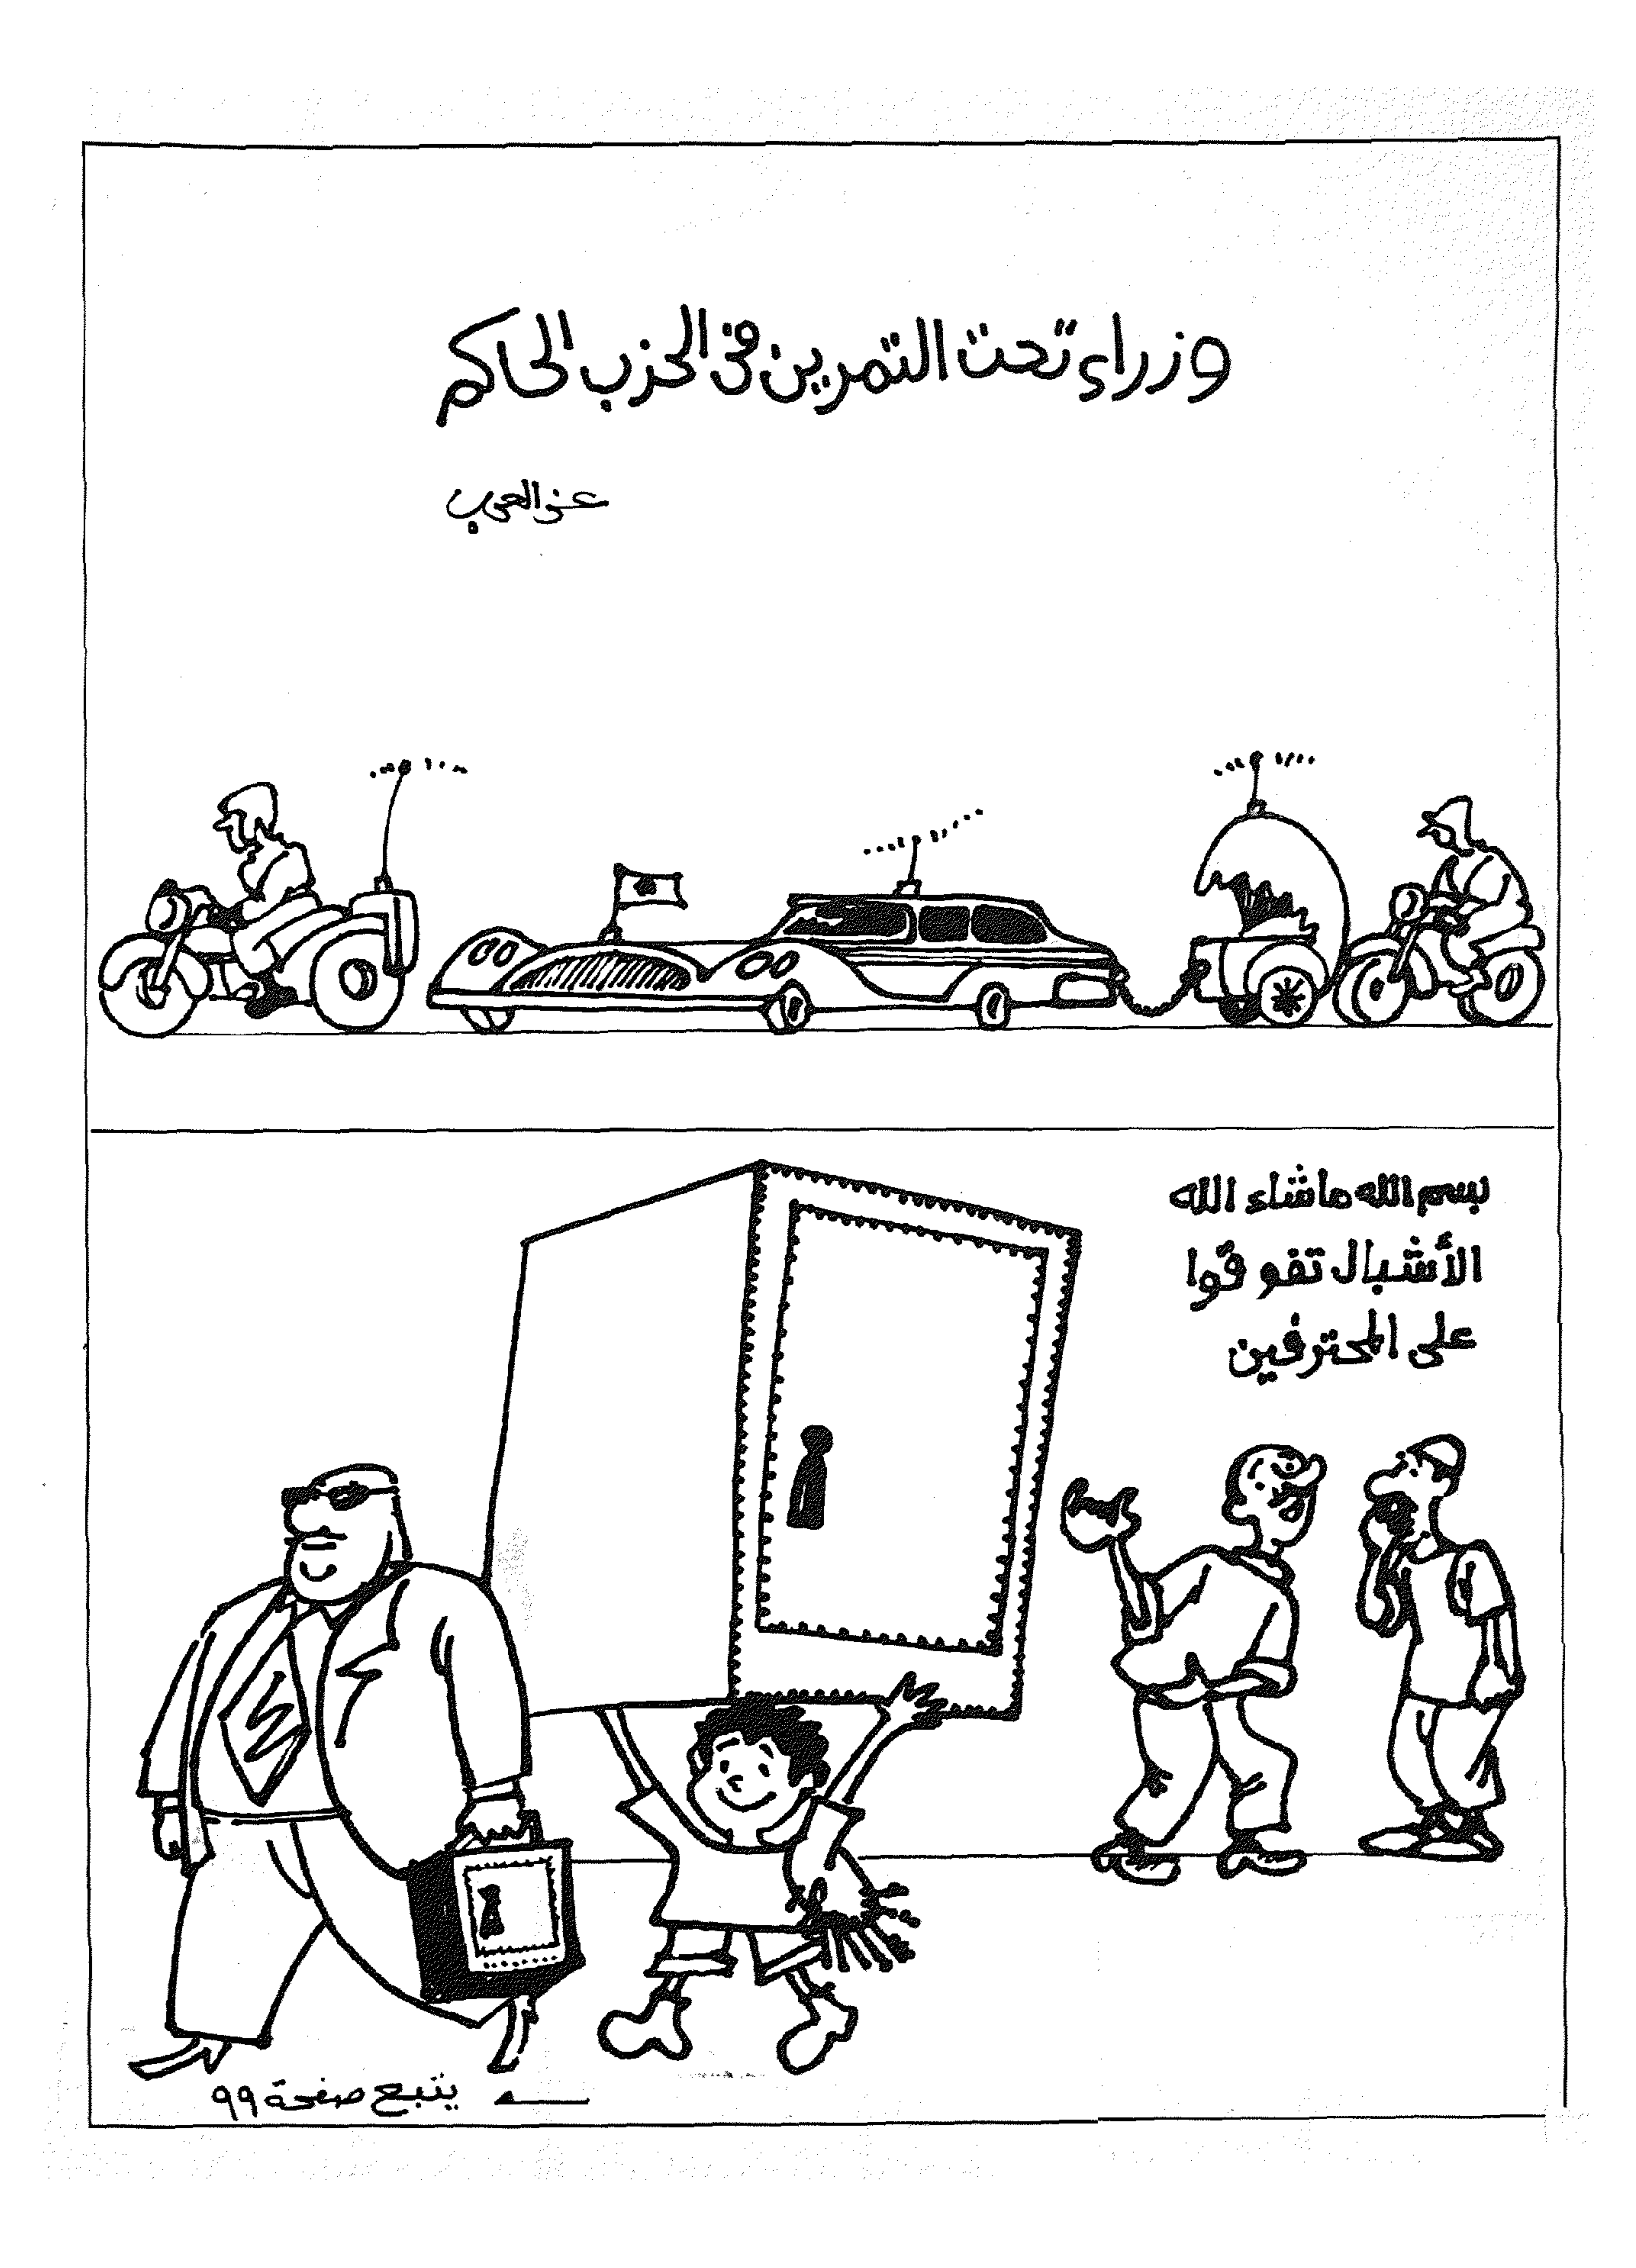 وزراء تحت التمرين فى الحزب الحاكم
عز العرب
بسم الله ماشاء الله
الأشبال تفوقوا
على المحترفين
يتبع صفحة ٩٩